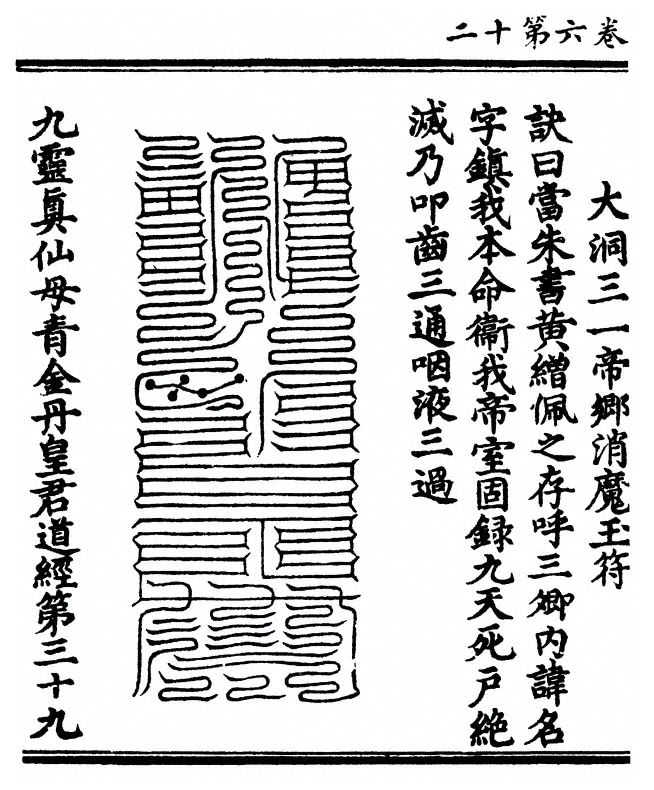 卷六第十二
大洞三一帝鄉消魔玉符
訣曰當朱書黃繒佩之存呼三卿內諱名
字鎮我本命衞我帝室固録九天死戶絶
滅乃叩齒三通咽液三過
九靈真仙母青金丹皇君道經第三十九